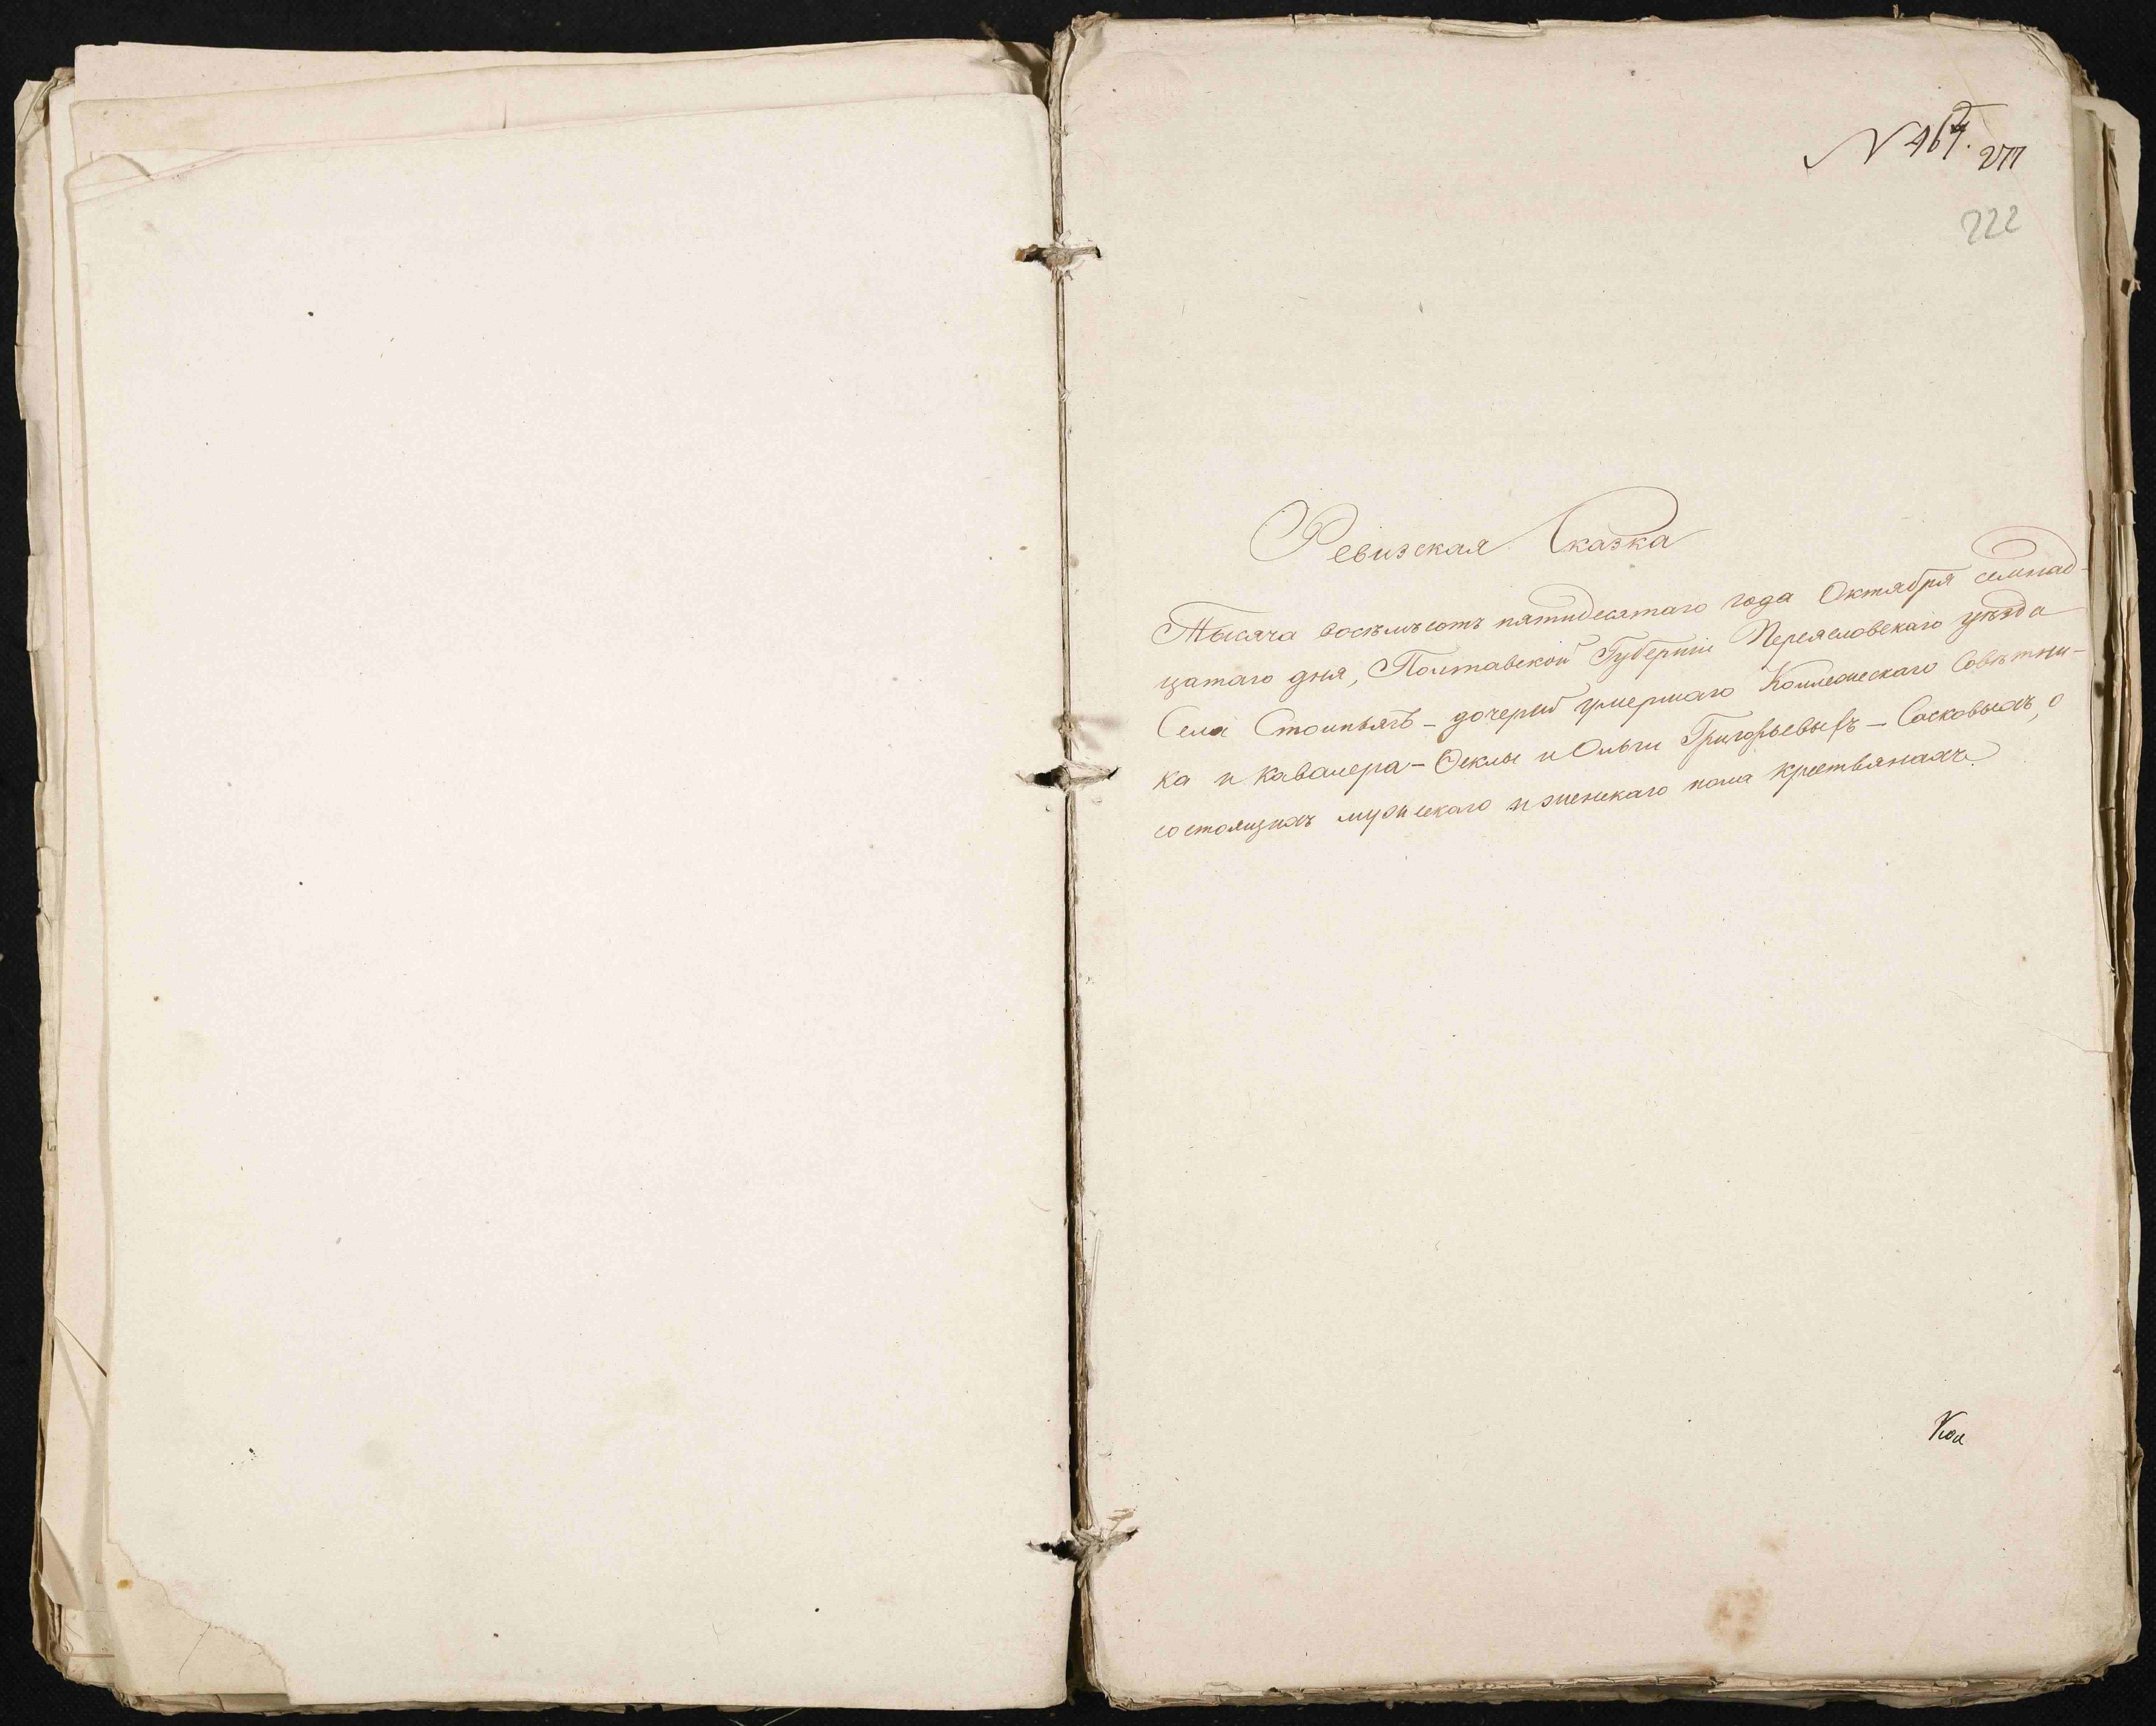 N 467.
277
222
Ревизская Сказка
Тысяча восъмъсотъ пятидесятаго года Октября семнад-
цатаго дня, Полтавской Губерніи Переясловскаго уѣзда
Села Стоипьягъ - дочерей умершаго Коллежскаго Совѣтни-
ка и кавалера - Феклы и Ольги Григорьевыхъ - Сасковыхъ, о
состоящихъ мужескаго и женскаго пола крестьянахъ